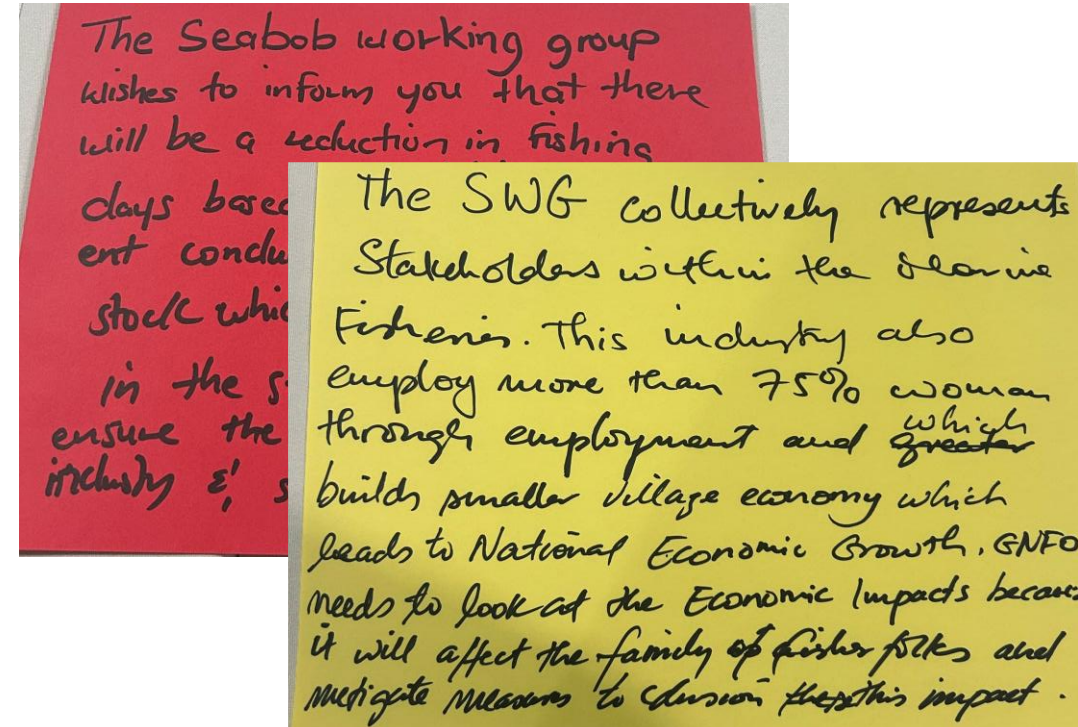 The Seabob working group
wishes to inform you that there
will be a reduction in fishing
days based
ent conclu
stock whic
in the s
ensure the
industry & s
The SWG collectively represents
Stakeholders within the Marine
Fisheries. This industry also
employ more than 75% woman
through employment and greater which
builds smaller village economy which
leads to National Economic Growth. GNFO
needs to look at the Economic Impacts becaus
it will affect the family of fisher folks and
mitigate measures to this impact.